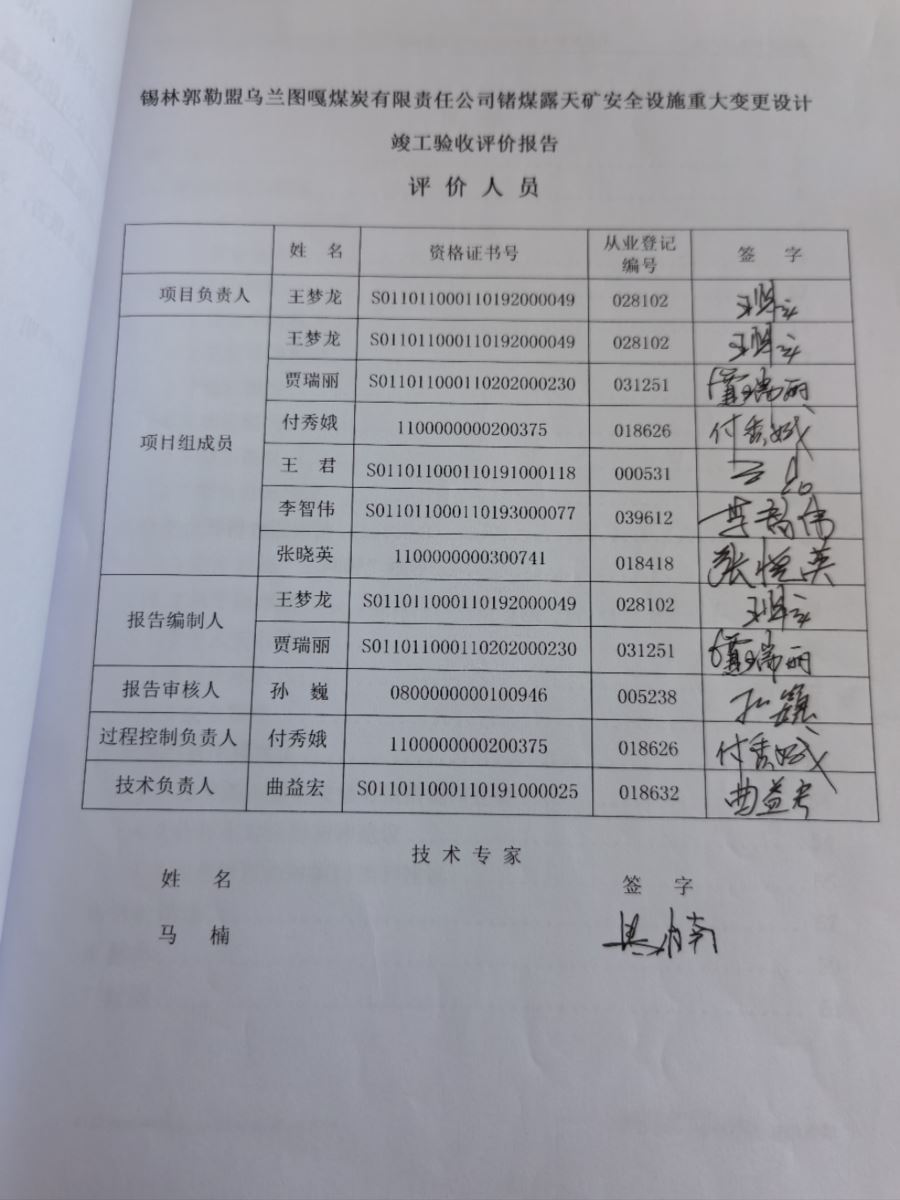 锡林郭勒盟乌兰图嘎煤炭有限责任公司锗煤露天矿安全设施重大变更设计
竣工验收评价报告
评价人员
姓 名 资格证书号 从业登记编号 签 字
项目负责人 王梦龙 S011011000110192000049 028102
项目组成员 王梦龙 S011011000110192000049 028102
贾瑞丽 S011011000110202000230 031251 贾瑞丽
付秀娥 1100000000200375 018626 付秀娥
王 君 S011011000110191000118 000531
李智伟 S011011000110193000077 039612 李智伟
张晓英 1100000000300741 018418 张晓英
报告编制人 王梦龙 S011011000110192000049 028102
贾瑞丽 S011011000110202000230 031251 贾瑞丽
报告审核人 孙 巍 0800000000100946 005238 孙巍
过程控制负责人 付秀娥 1100000000200375 018626 付秀娥
技术负责人 曲益宏 S011011000110191000025 018632 曲益宏
技术专家
姓 名 签 字
马 楠 马楠